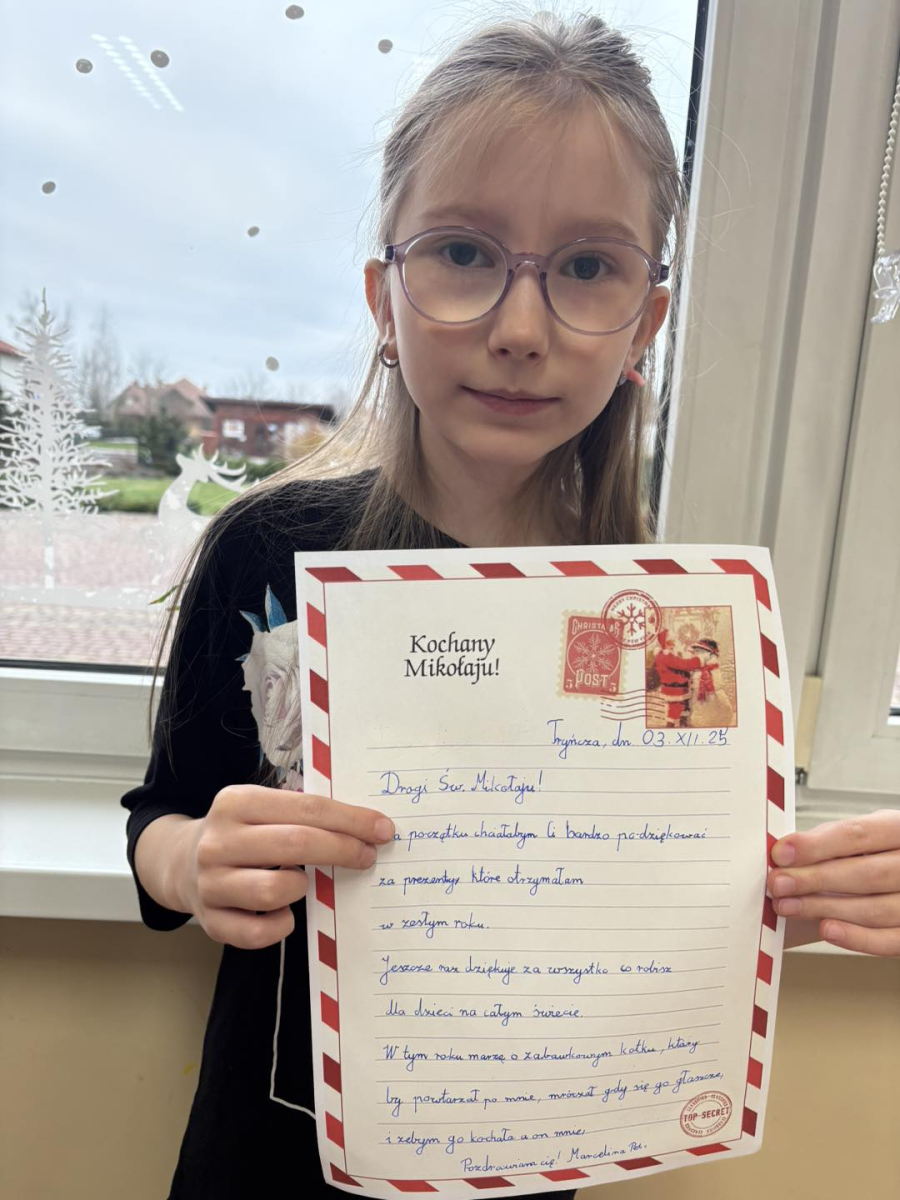 Kochany
Mikołaju!
MERRY CHRISTMAS
CHRISTMAS
POST
5 5
Tryńcza, dn 03.XII.25
Drogi Św. Mikołaju!
a początku chciałabym Ci bardzo podziękować
za prezenty, które otrzymałam
w zeszłym roku.
Jeszcze raz dziękuję za wszystko co robisz
dla dzieci na całym świecie.
W tym roku marzę o zabawkowym kotku, który
by powtarzał po mnie, mróczał gdy się go głaszcze,
i żebym go kochała a on mnie,
Pozdrawiam cię! Marcelina
TOP SECRET